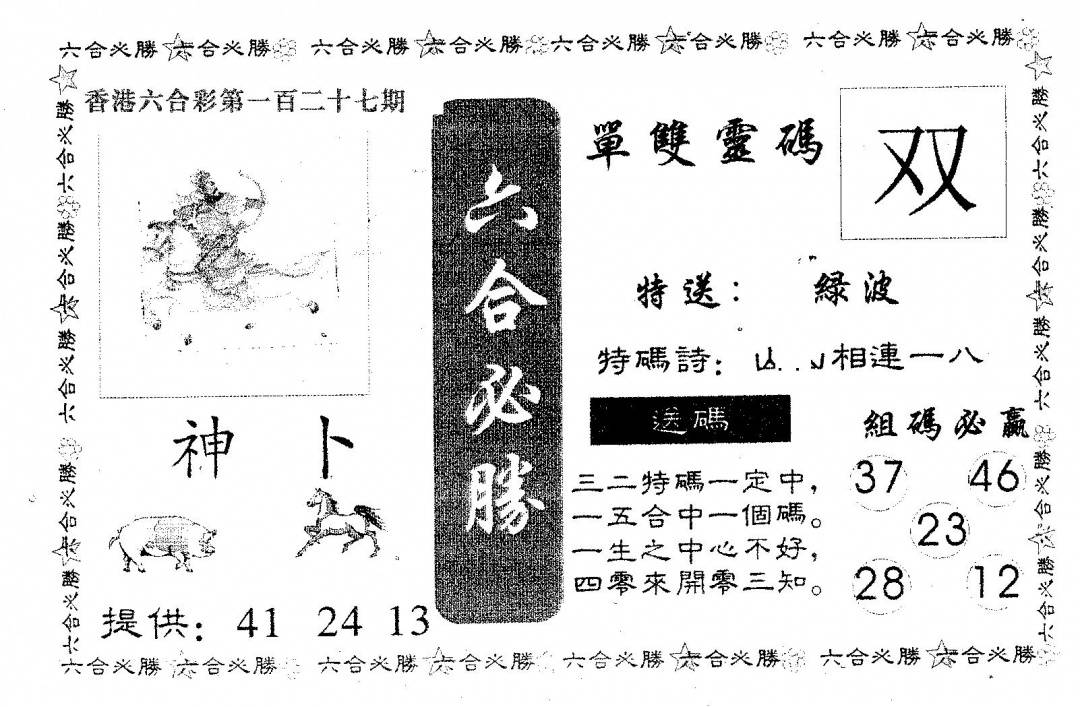 六合必勝 六合必勝 六合必勝 六合必勝 六合必勝 六合必勝 六合必勝 六合必勝
香港六合彩第一百二十七期
神卜
提供：41 24 13
六合必勝
單雙靈碼
双
特送：綠波
特碼詩：相連一八
送碼
三二特碼一定中，
一五合中一個碼。
一生之中心不好，
四零來開零三知。
組碼必贏
37 46
23
28 12
六合必勝 六合必勝 六合必勝 六合必勝 六合必勝 六合必勝 六合必勝 六合必勝
六合必勝 六合必勝 六合必勝 六合必勝 六合必勝
六合必勝 六合必勝 六合必勝 六合必勝 六合必勝